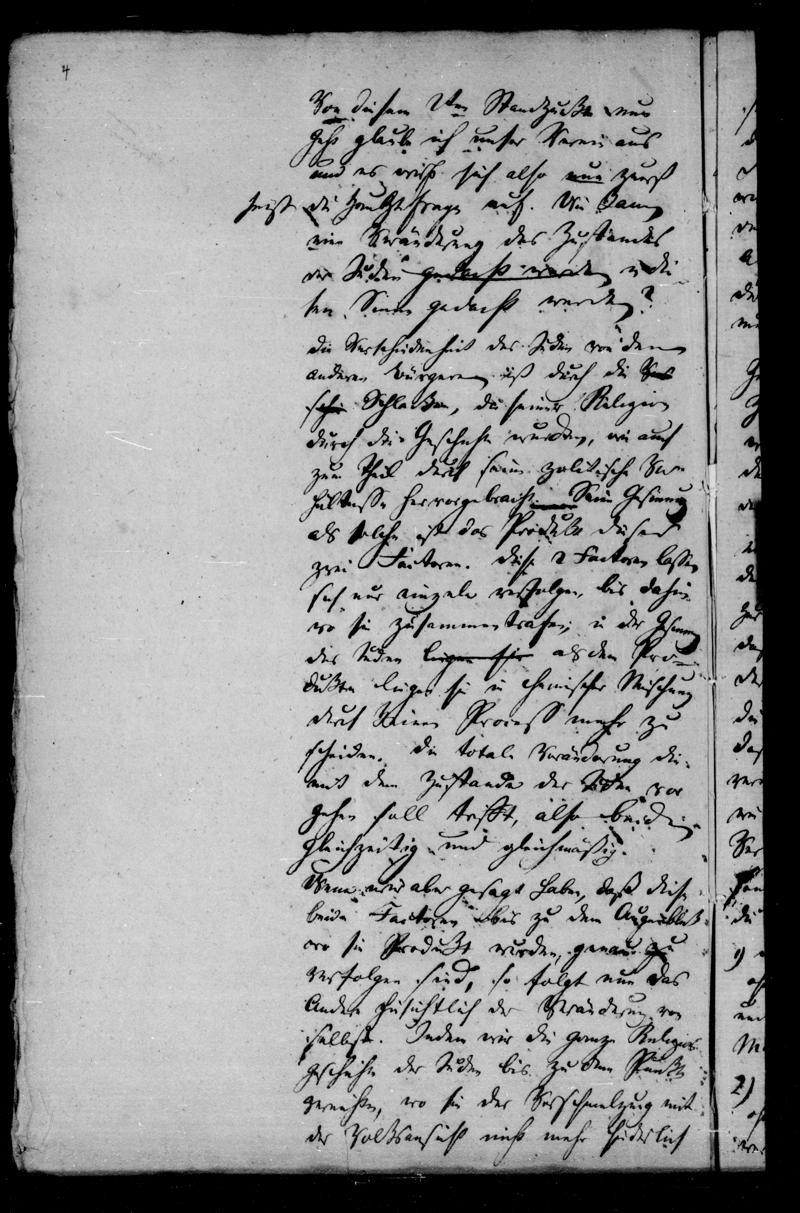 4
Von diesem 2ten Standpunkte nun
geht glaube ich unser Verein aus
und es wirft sich also nun zuerst
die Hauptfrage auf. Wie kann
eine Veränderung des Zustandes
der Juden gedacht werden in die
sem Sinne gedacht werden?
die Verschiedenheit des Juden von den
anderen Bürgern ist durch die
Schlacken, die seiner Religion
durch die Geschichte wurden, wie auch
zum Theil durch seine politische Ver
hältnisse hervorgebracht. Seine Gesinnung
als solche ist das Produkt dieser
zwei Factoren. diese 2 Factoren lassen
sich nur einzeln verfolgen, bis dahin
wo sie zusammentrafen; in der Gesinnung
des Juden liegen sie als dem Pro-
dukte liegen sie in chemischer Mischung
durch keinen Process mehr zu
scheiden. Die totale Veränderung die
mit dem Zustande der Juden vor
gehen soll trifft, also beide
gleichzeitig und gleichmäßig.
Wenn wir aber gesagt haben, daß diese
beide Factoren bis zu dem Augenblick
wo sie Produkt wurden, genau zu
verfolgen sind, so folgt nun das
Andere hinsichtlich der Veränderung von
selbst. Indem wir die ganze Religions
geschichte der Juden bis zu dem Punkte
wo sie der Verschmelzung mit
der Volksansicht nicht mehr hinderlich